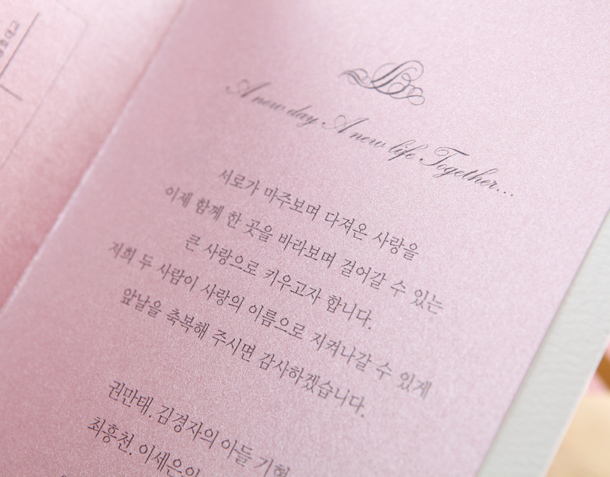 B
A new day A new life Together...
서로가 마주보며 다져온 사랑을
이제 함께 한 곳을 바라보며 걸어갈 수 있는
큰 사랑으로 키우고자 합니다.
저희 두 사람이 사랑의 이름으로 지켜나갈 수 있게
앞날을 축복해 주시면 감사하겠습니다.
권만태. 김경자의 아들 기현
최흥천. 이세은의